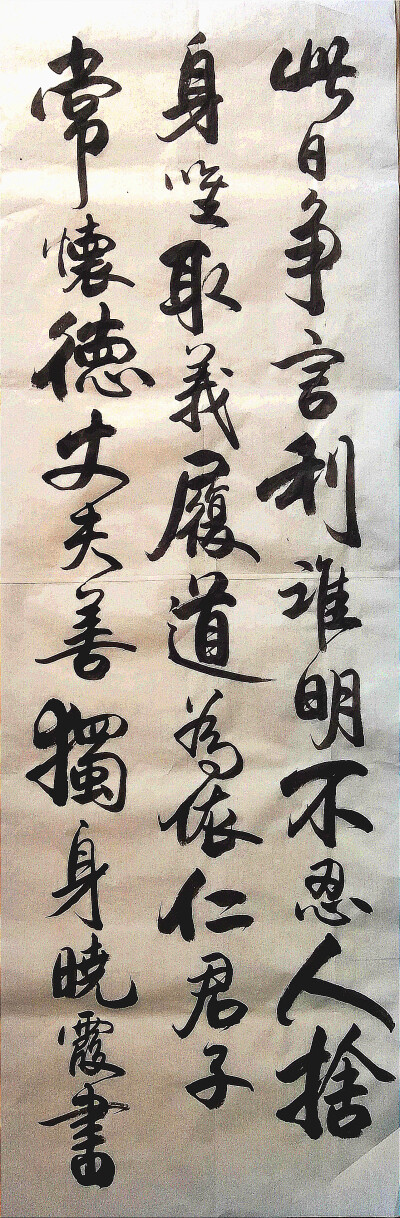 此日争言利誰明不忍人捨
身唯取義履道為依仁君子
常懷德丈夫善獨身曉霞書